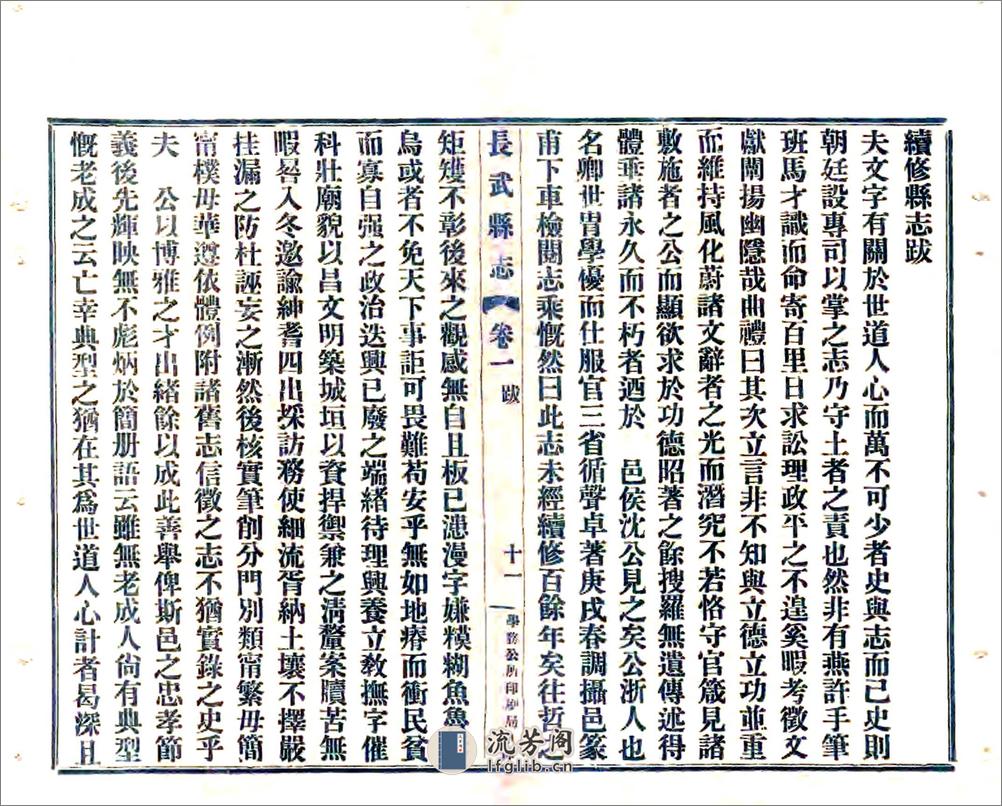 續修縣志跋
夫文字有關於世道人心而萬不可少者史與志而已史則
朝廷設專司以掌之志乃守土者之責也然非有燕許手筆
班馬才識而命寄百里日求訟理政平之不遑奚暇考徵文
獻闡揚幽隱哉曲禮曰其次立言非不知與立德立功並重
而維持風化蔚諸文辭者之光而潛究不若恪守官箴見諸
敷施者之公而顯欲求於功德昭著之餘搜羅無遺傳述得
體垂諸永久而不朽者迺於 邑侯沈公見之矣公浙人也
名卿世胄學優而仕服官三省循聲卓著庚戌春調攝邑篆
甫下車檢閱志乘慨然曰此志未經續修百餘年矣往哲之
長武縣志 卷一 跋 十一 學務公所印刷局
矩矱不彰後來之觀感無自且板已漶漫字嫌糢糊魚魯
烏或者不免天下事詎可畏難苟安乎無如地瘠而衝民貧
而寡自强之政治迭興已廢之端緒待理興養立教撫字催
科壯廟貌以昌文明築城垣以資捍禦兼之淸釐案牘苦無
暇晷入冬邀諭紳耆四出採訪務使細流胥納土壤不擇嚴
挂漏之防杜誣妄之漸然後核實筆削分門別類甯繁毋簡
甯樸毋華遵依體例附諸舊志信徵之志不猶實錄之史乎
夫 公以博雅之才出緒餘以成此善舉俾斯邑之忠孝節
義後先輝映無不彪炳於簡册語云雖無老成人尙有典型
慨老成之云亡幸典型之猶在其爲世道人心計者曷深且
流芳阁
lfglib.cn